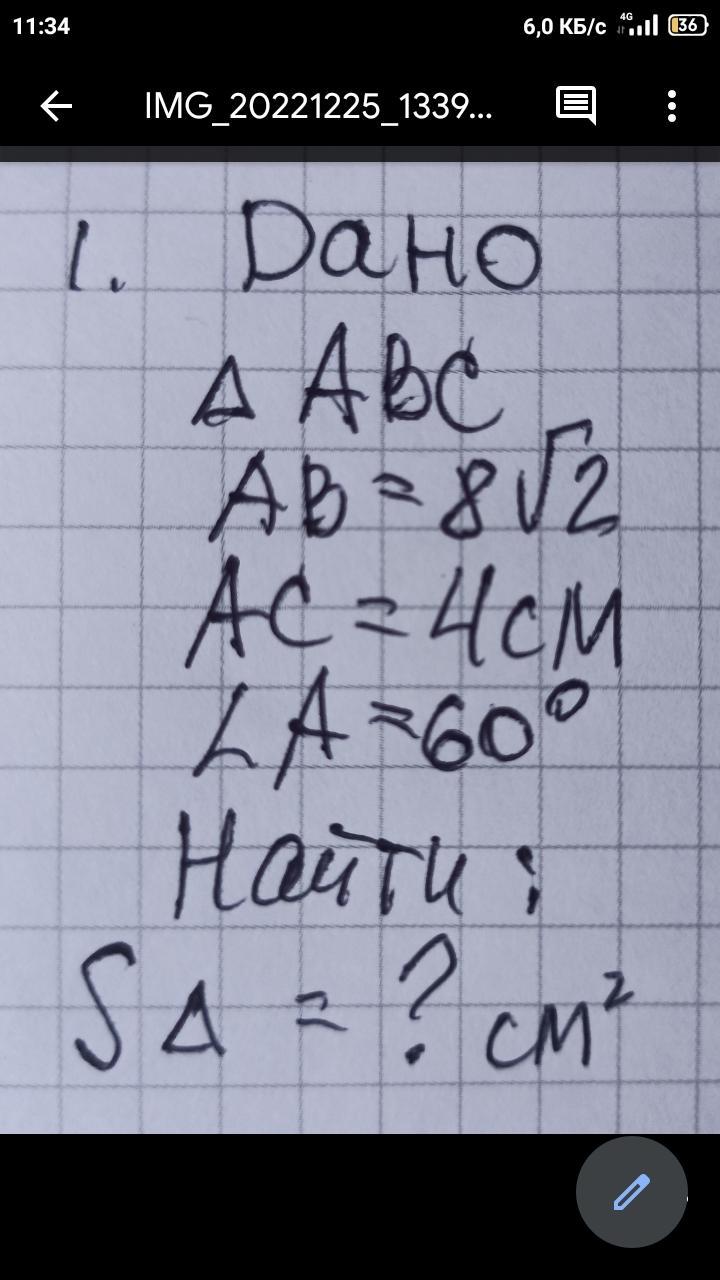 11:34 6,0 КБ/с 4G 36
IMG_20221225_1339...
1. Дано
Δ ABC
AB = 8√2
AC = 4 см
∠A = 60°
Найти :
SΔ = ? см²